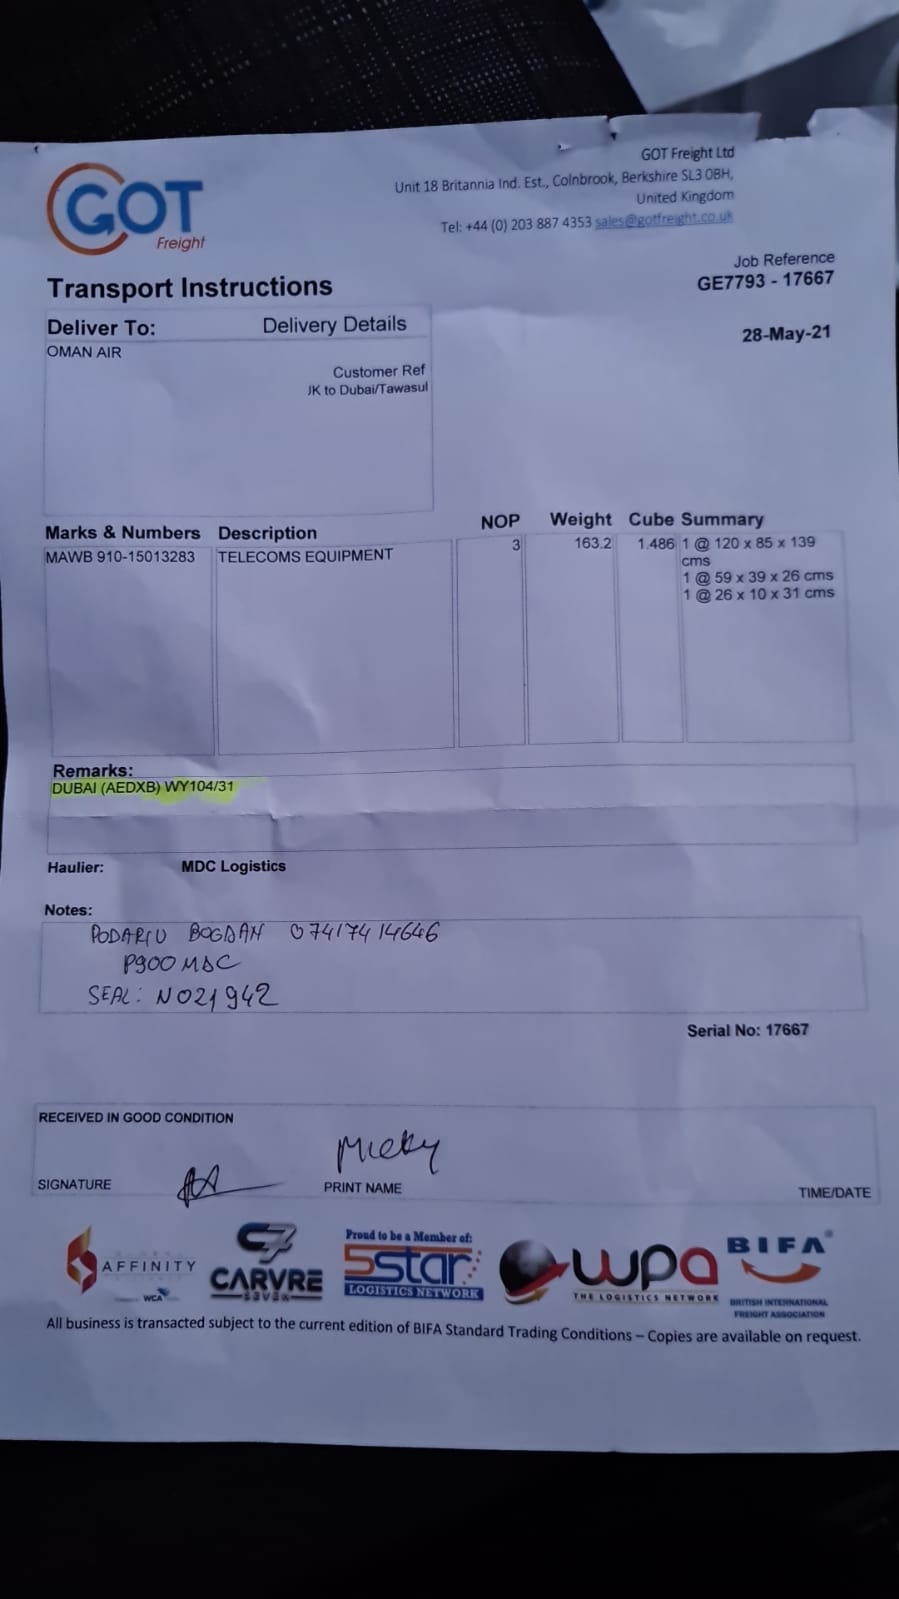 GOT
Freight
GOT Freight Ltd
Unit 18 Britannia Ind. Est., Colnbrook, Berkshire SL3 0BH,
United Kingdom
Tel: +44 (0) 203 887 4353 sales@gotfreight.co.uk
Job Reference
GE7793 - 17667
28-May-21
Transport Instructions
Deliver To: Delivery Details
OMAN AIR
Customer Ref
JK to Dubai/Tawasul
Marks & Numbers Description NOP Weight Cube Summary
MAWB 910-15013283 TELECOMS EQUIPMENT 3 163.2 1.486 1 @ 120 x 85 x 139
cms
1 @ 59 x 39 x 26 cms
1 @ 26 x 10 x 31 cms
Remarks:
DUBAI (AEDXB) WY104/31
Haulier: MDC Logistics
Notes:
PODARIU BOGDAN 07417414646
P900MDC
SEAL: N021942
Serial No: 17667
RECEIVED IN GOOD CONDITION
Micky
SIGNATURE PRINT NAME TIME/DATE
AFFINITY
WCA
C7
CARVRE
SEVEN
Proud to be a Member of:
5star
LOGISTICS NETWORK
wpa
THE LOGISTICS NETWORK
BIFA
BRITISH INTERNATIONAL
FREIGHT ASSOCIATION
All business is transacted subject to the current edition of BIFA Standard Trading Conditions – Copies are available on request.